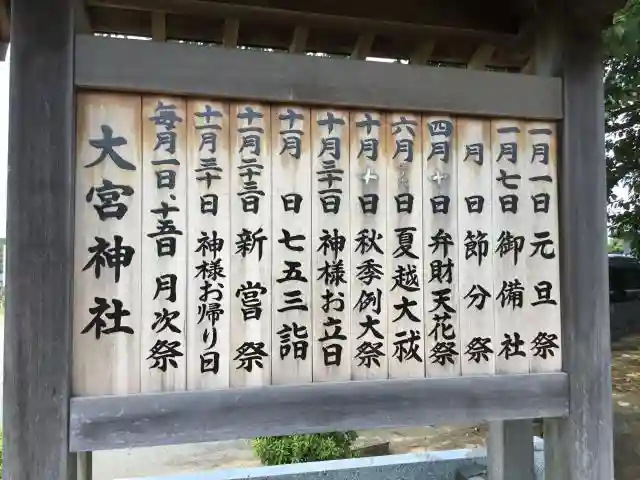 一月一日 元旦祭
一月七日 御備社
月 日 節分祭
四月十日 弁財天花祭
六月 日 夏越大祓
十月十日 秋季例大祭
十月三十一日 神様お立日
十一月 日 七五三詣
十一月二十三日 新嘗祭
十一月三十日 神様お帰り日
毎月一日、十五日 月次祭
大宮神社